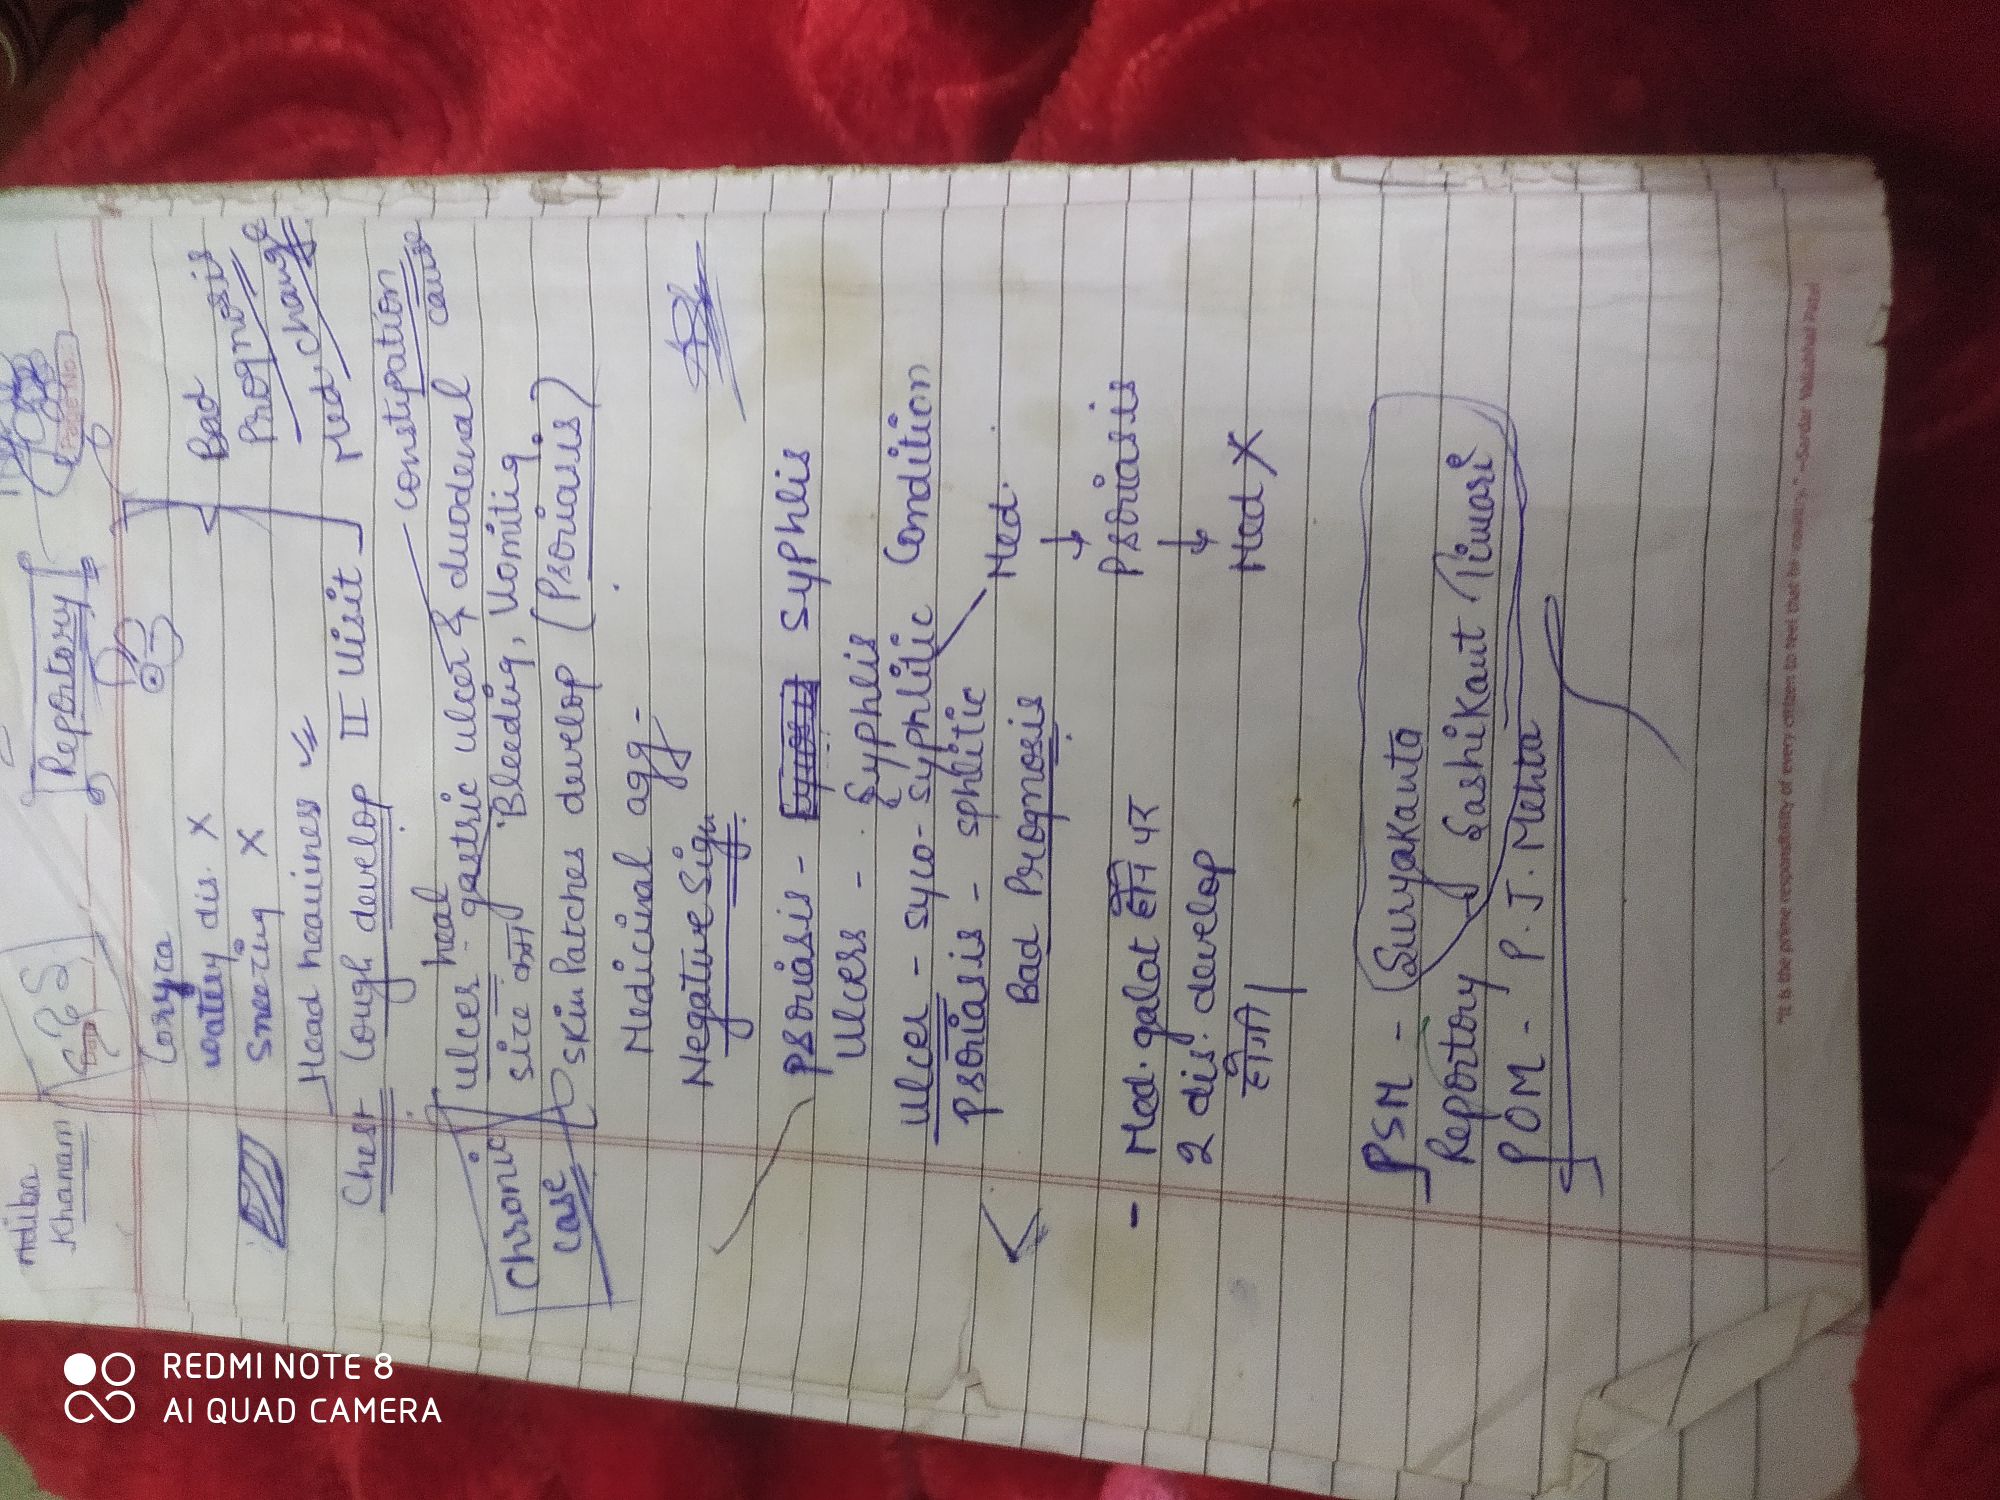 Adiba
Khanam
Repertory
Page No.
Coryza
watery dis. X
Sneezing X
Head heaviness
Chest Cough develop II Visit
Bad Prognosis
Prognosis
Med change
Med
Constipation
cause
heal
Chronic
case
ulcer - gastric ulcer & duodenal
size कम Bleeding, Vomiting
skin Patches develop (Psoriasis)
Medicinal agg -
Negative Sign.
Psoriasis - Syphlis
ulcers - Syphlis
ulcer - syco-syphlitic Condition
Psoriasis - sphlitic
Med.
↓
Psoriasis
↓
Med X
Bad Prognosis
- Med. galat होने पर
2 dis. develop
होगी |
PSM - Suryakanta
Repertory Sashikant Tiwari
POM - P. J. Mehta
"It is the prime responsibility of every citizen to feel that his country..." -Sardar Vallabhbhai Patel
REDMI NOTE 8
AI QUAD CAMERA